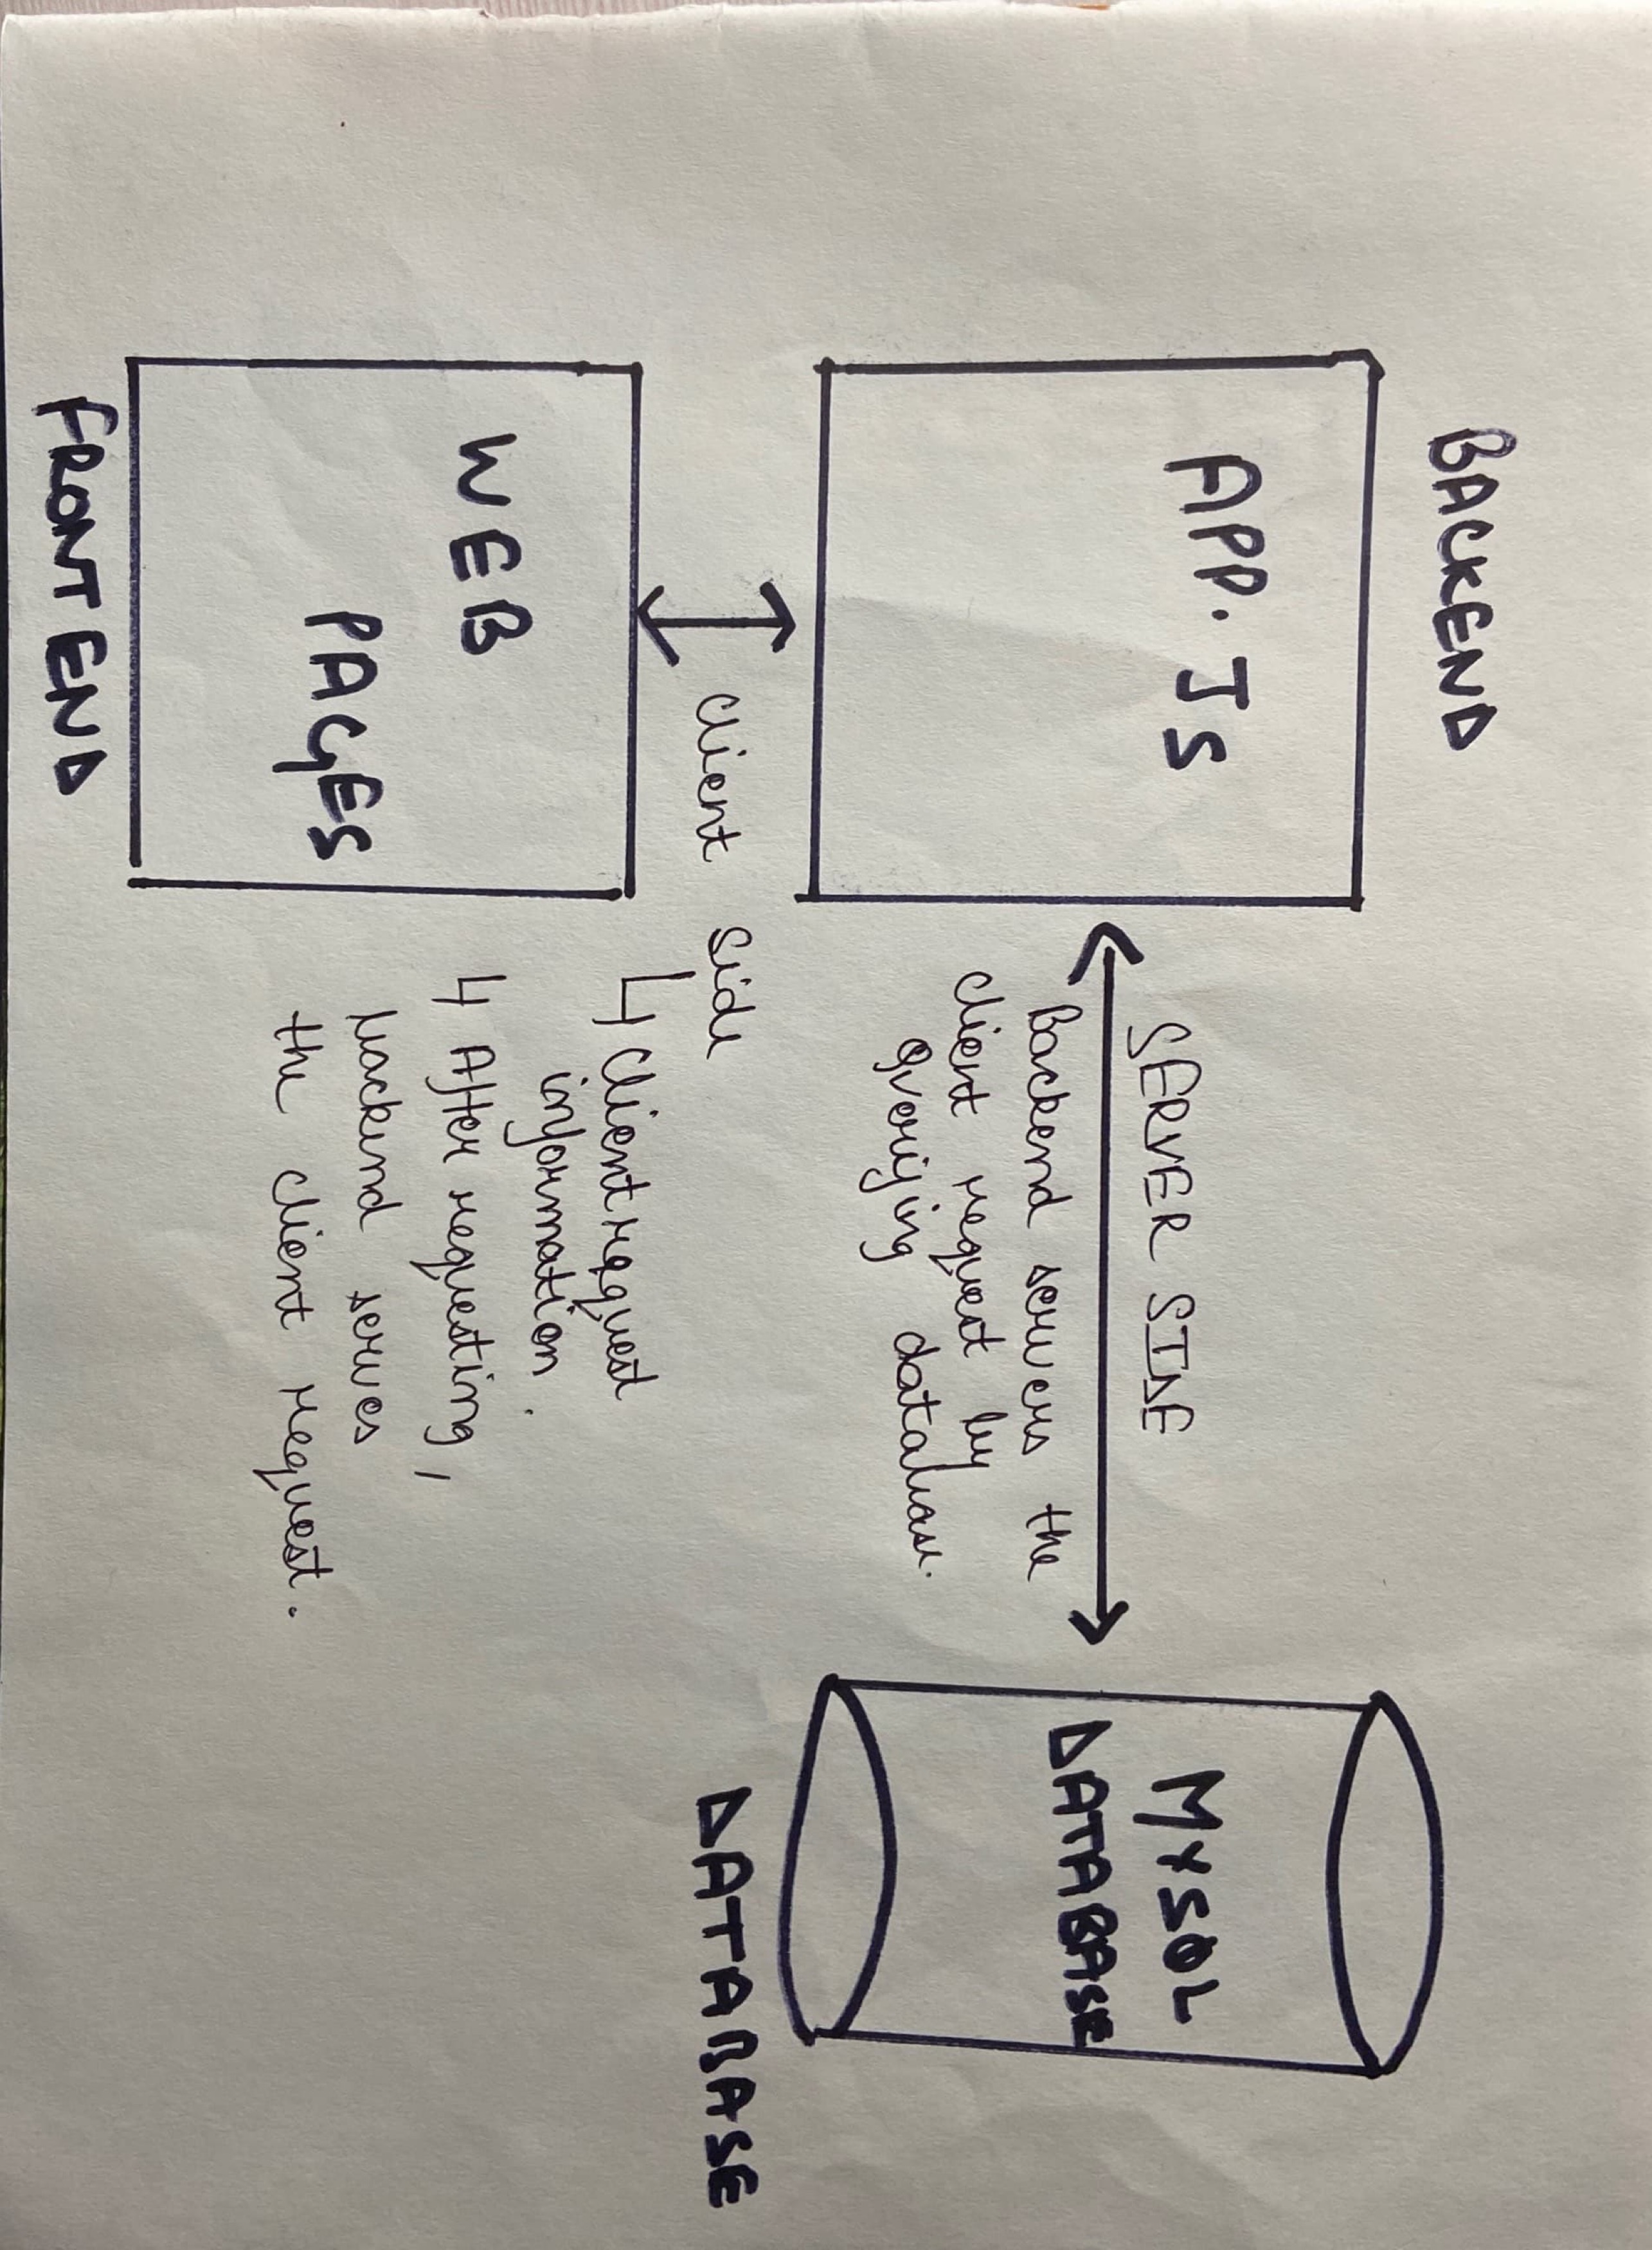 BACKEND
APP.JS
SERVER SIDE
Backend servers the
client request by
querying database.
MYSQL
DATABASE
DATABASE
client side
↳ Client request
information.
↳ After requesting,
backend serves
the client request.
WEB
PAGES
FRONT END